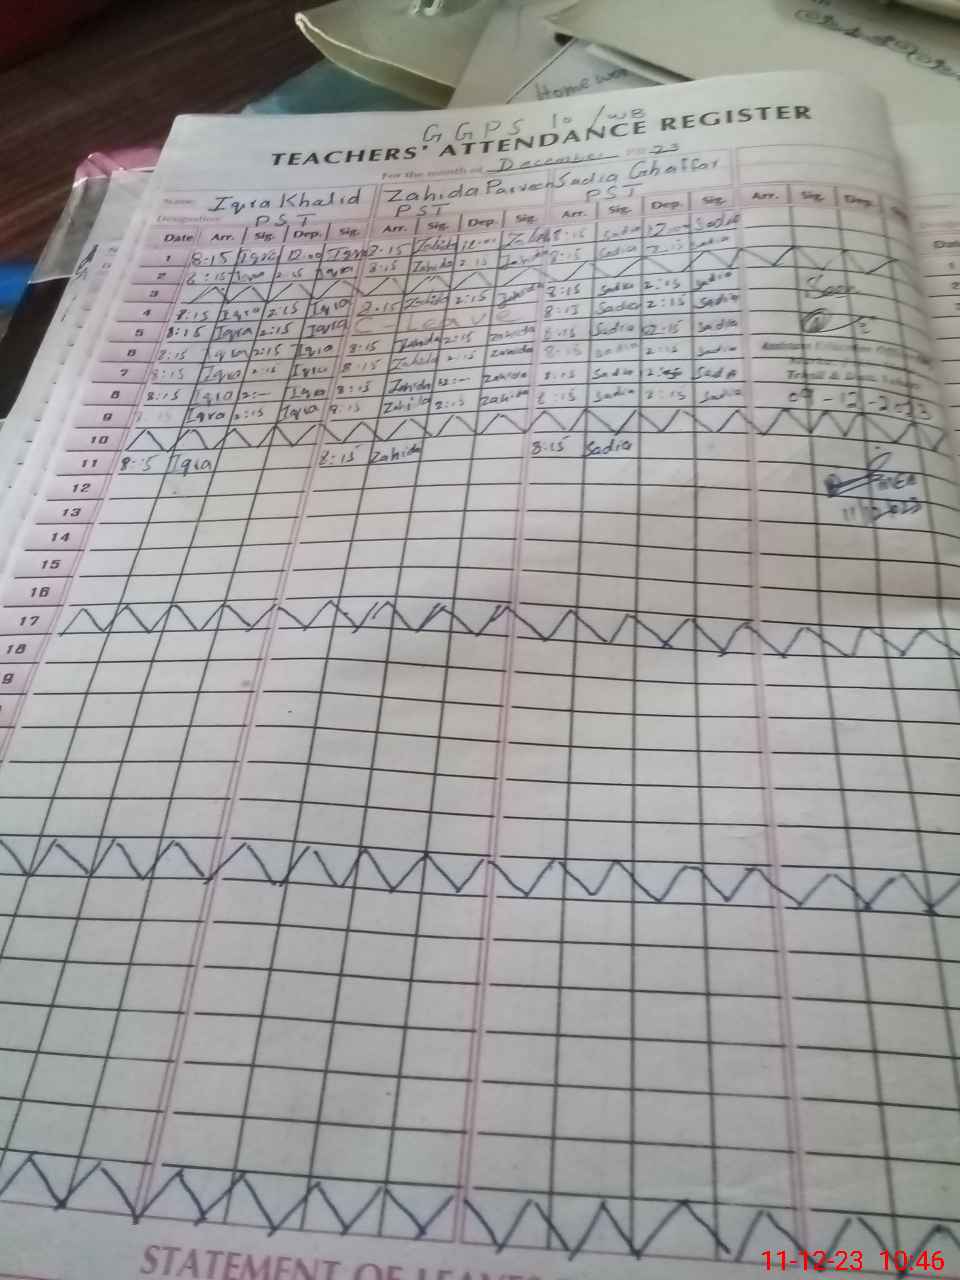 Home wor
G G P S 10 / WB
TEACHERS' ATTENDANCE REGISTER
For the month of December 23
Name Iqra Khalid Zahida Parveen Sadia Ghaffar
Designation PST PST PST
Date Arr. Sig. Dep. Sig. Arr. Sig. Dep. Sig. Arr. Sig. Dep. Sig. Arr. Sig. Dep.
1 8:15 Iqra 12:00 Iqra 8:15 Zahida 12:00 Zahida 8:15 Sadia 12:00 Sadia
2 8:15 Iqra 2:15 Iqra 8:15 Zahida 2:15 Zahida 8:15 Sadia 2:15 Sadia
3
4 8:15 Iqra 2:15 Iqra 8:15 Zahida 2:15 Zahida 8:15 Sadia 2:15 Sadia Seen
5 8:15 Iqra 2:15 Iqra C-Leave 8:15 Sadia 2:15 Sadia
6 8:15 Iqra 2:15 Iqra 8:15 Zahida 2:15 Zahida 8:15 Sadia 2:15 Sadia
7 8:15 Iqra 2:15 Iqra 8:15 Zahida 2:15 Zahida 8:15 Sadia 2:15 Sadia
8 8:15 Iqra 12:— Iqra 8:15 Zahida 12:— Zahida 8:15 Sadia Sadia
9 8:15 Iqra 2:15 Iqra 8:15 Zahida 2:15 Zahida 8:15 Sadia 2:15 Sadia 09-12-2023
10
11 8:15 Iqra 8:15 Zahida 8:15 Sadia
12 MEA
13 11/12/2023
14
15
16
17
18
9
STATEMENT OF LEAVE
11-12-23 10:46